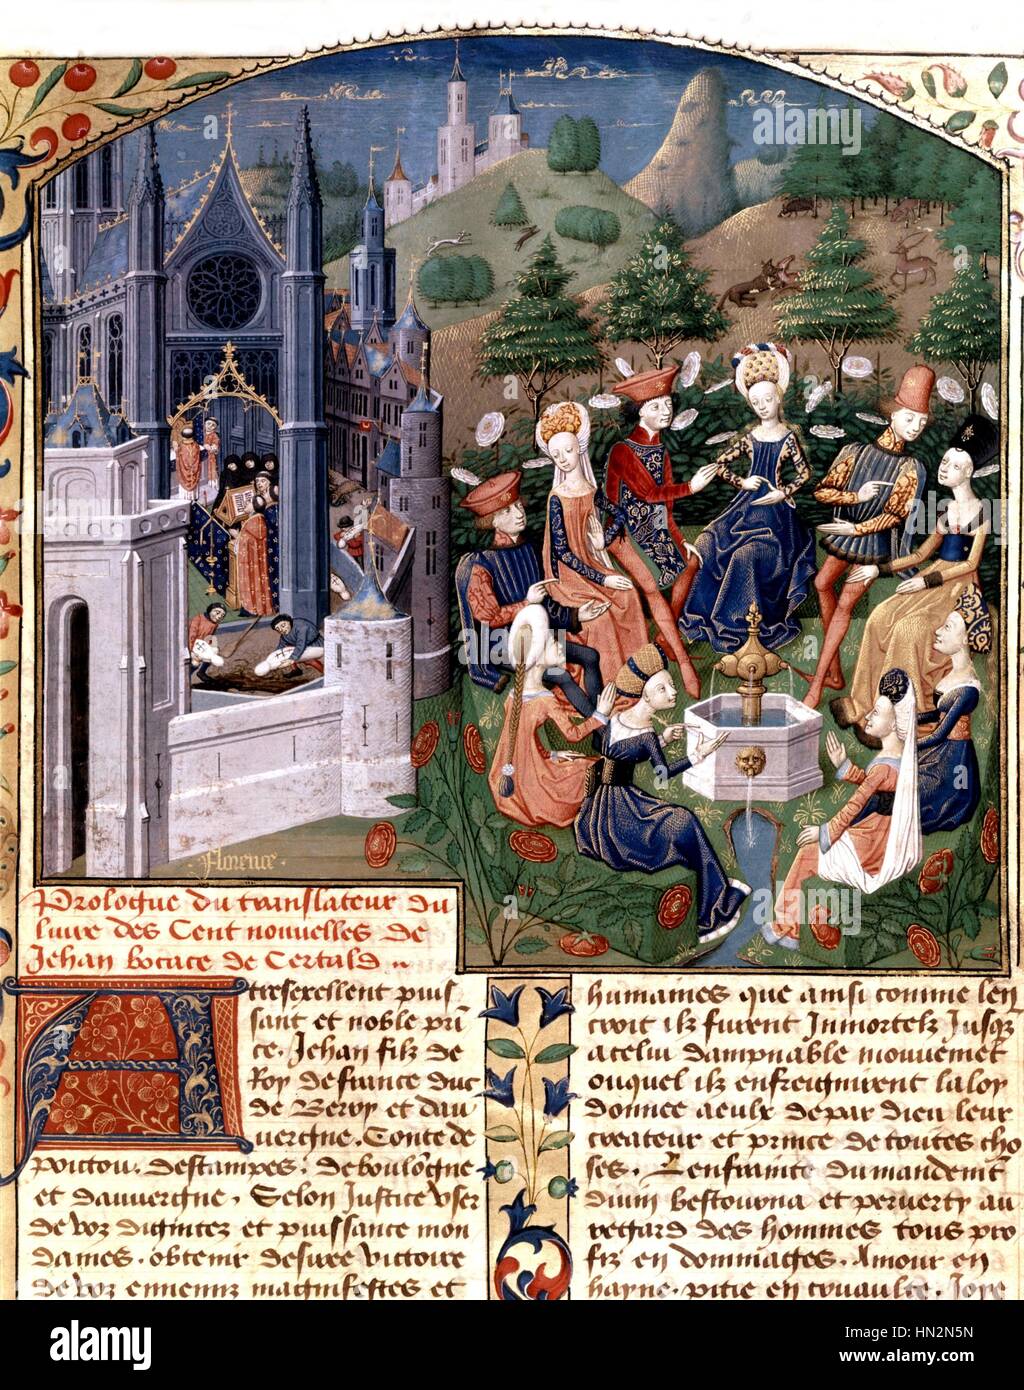 Florence
Prologue du translateur du
livre des Cent nouvelles de
Jehan bocace de Certald
A tresexellent puis
sant et noble prī
ce. Jehan filz de
Roy de france duc
de Berry et dau
uergne. Conte de
poictou. destampes. de boulōgne
et dauuergne. Selon Justice vser
de voz dignitez et puissance mon
dames. obtenir desiree victoire
de voz ennemz magnifestes et
humaines que ainsi comme len
croit ilz furent Inmortelz Jusqz
a celui dampnable mouuemēt
ouquel ilz enfreignirent la loy
donnee a eulx de par dieu leur
createur et prince de toutes cho
ses. Lenfrainte du mandemēt
diuin bestourna et peruerty au
regard des hommes tous pro
fiz en dommages. Amour en
hayne. pitie en cruaulte. Joye
a alamy stock photo
HN2N5N
www.alamy.com